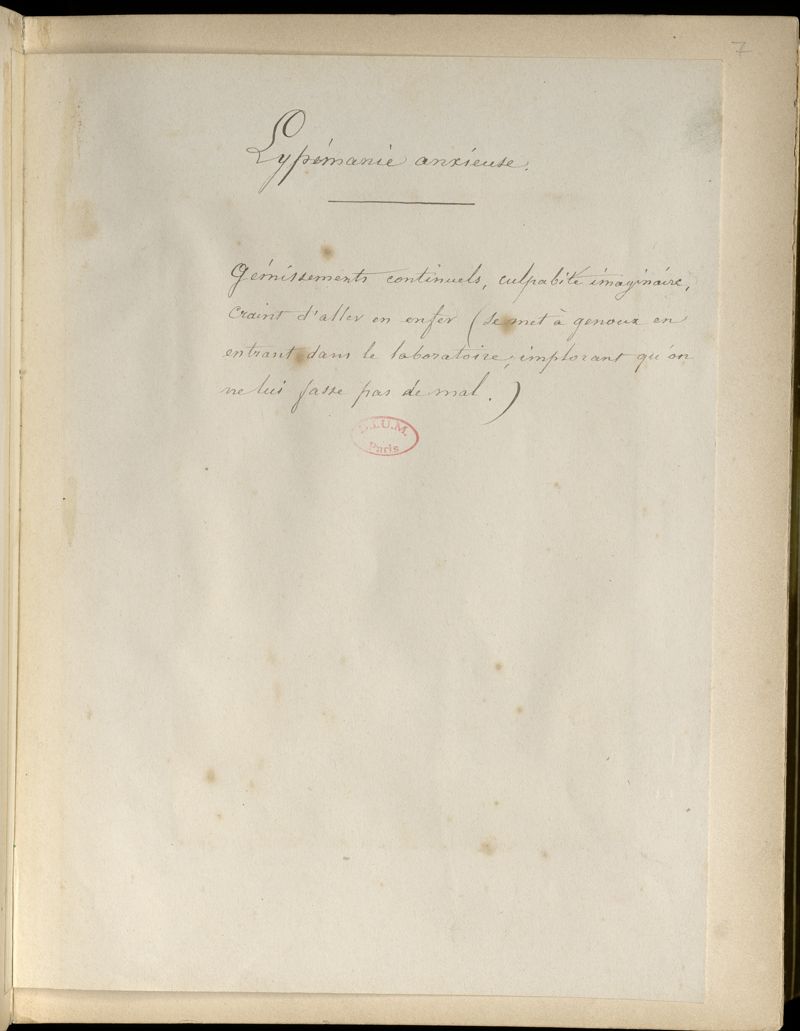 7
Lypémanie anxieuse.
Gémissements continuels, culpabité imaginaire,
craint d'aller en enfer (se met à genoux en
entrant dans le laboratoire, implorant qu'on
ne lui fasse pas de mal.)
B.I.U.M.
Paris